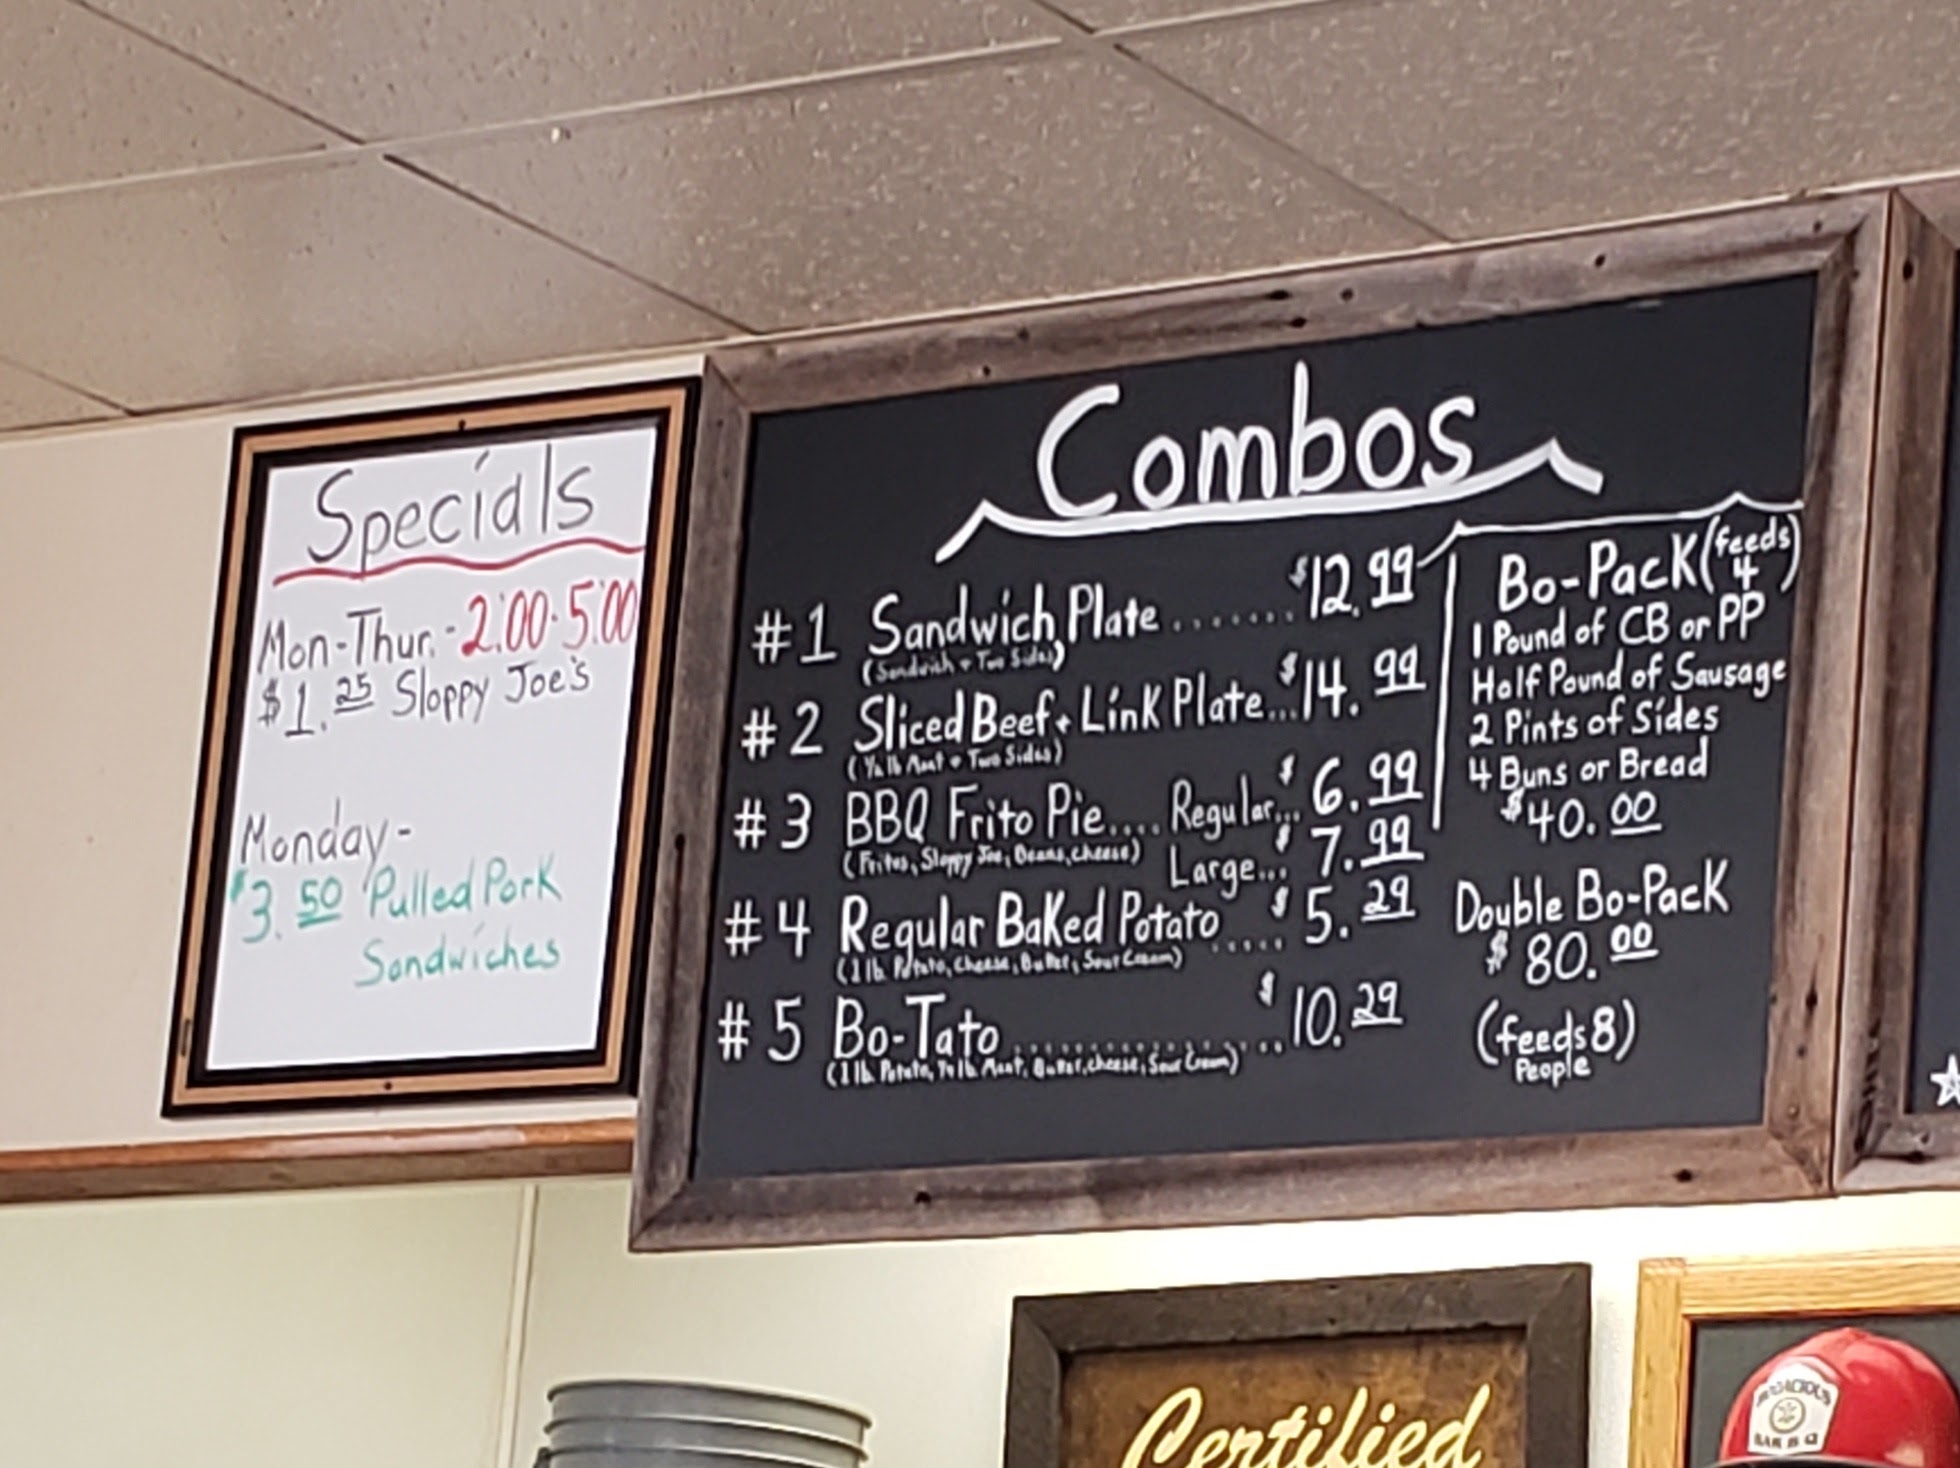 Specials
Mon-Thur. - 2:00-5:00
$1.25 Sloppy Joe's
Monday -
$3.50 Pulled Pork
Sandwiches
Combos
#1 Sandwich Plate....... $12.99
(Sandwich + Two Sides)
#2 Sliced Beef + Link Plate... $14.99
(lb Meat + Two Sides)
#3 BBQ Frito Pie.... Regular... $6.99
(Fritos, Sloppy Joe, Beans, cheese) Large... $7.99
#4 Regular Baked Potato ..... $5.29
(1 lb. Potato, Cheese, Butter, Sour Cream)
#5 Bo-Tato ................ $10.29
(1 lb. Potato, lb. Meat, Butter, cheese, Sour Cream)
Bo-Pack (feeds 4)
1 Pound of CB or PP
Half Pound of Sausage
2 Pints of Sides
4 Buns or Bread
$40.00
Double Bo-Pack
$80.00
(feeds 8)
People
Certified
BAR B Q